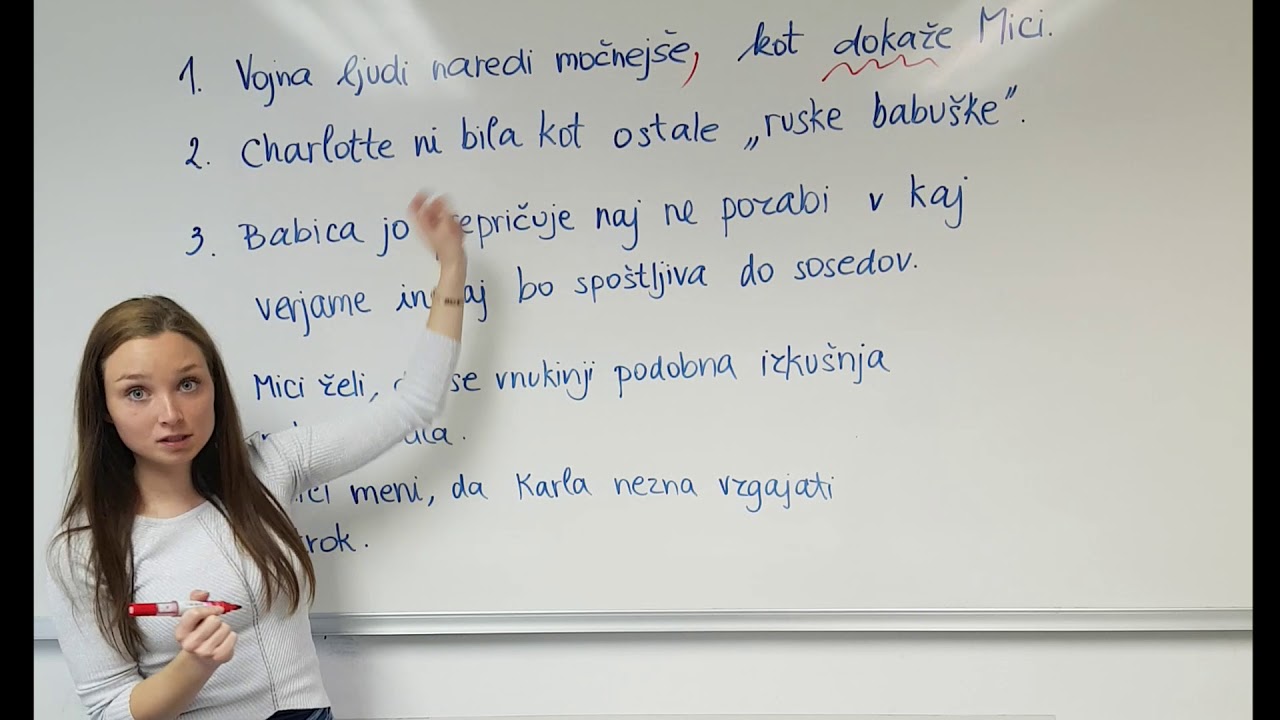 1. Vojna ljudi naredi močnejše, kot dokaže Mici.
2. Charlotte ni bila kot ostale „ruske babuške".
3. Babica jo naj ne pozabi v kaj
verjame bo spoštljiva do sosedov.
Mici želi, se vnukinji podobna izkušnja
meni, da Karla nezna vzgajati